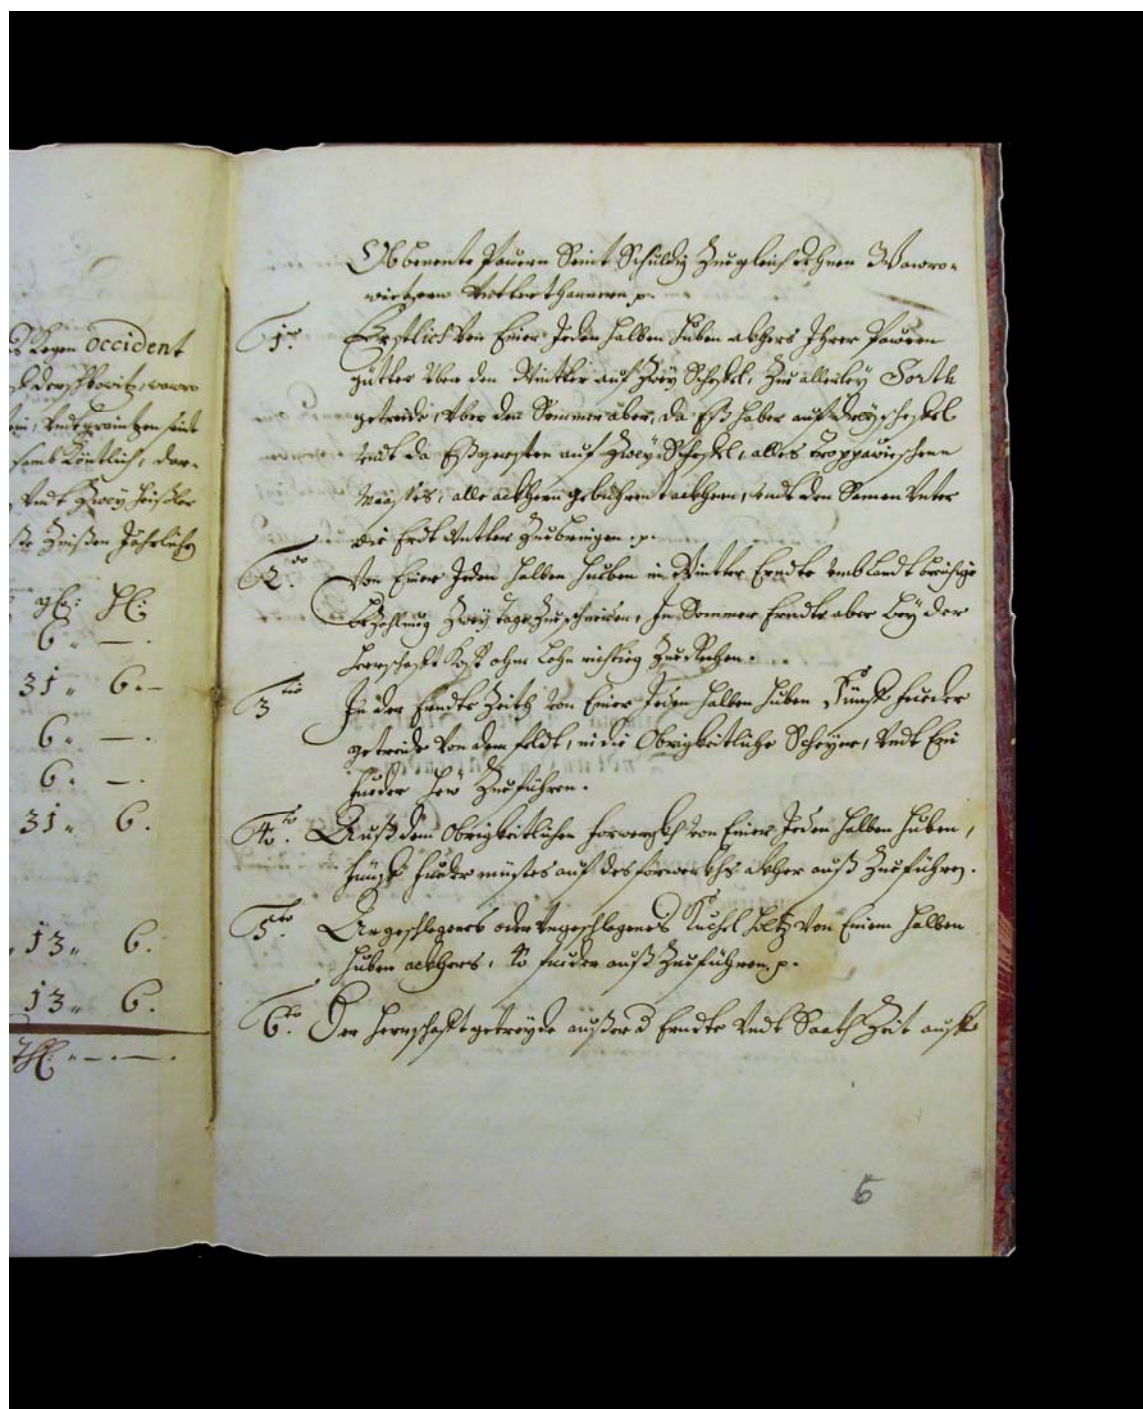 gegen Occident
gl: hl:
6 " — .
31 " 6 . —
6 " — .
6 " — .
31 " 6 .
13 " 6 .
13 " 6 .
— . — .
Obbenente Pauern Seint Schuldig Zuegleich denen Wawro-
wietzern Unterthannen p.
1mo. Erstlich Von Einer Jeden halben huben akhers Ihrer Pauren
gütter Uber den Wintter auf Zwey Scheffel, Zue allerley Sorth
getreide, Uber den Sommer aber, da Eß haber auf Drey scheffel
Undt da Eß gersten auf Zwey Scheffel, alles Troppauischenn
Maaßes, alle akhern gebührent akhern, Undt den Samen Unter
die Erdt Zuebringen. p.
2do. Von Einer Jeden halben huben in Wintter Erndte Umb Landt breuchige
bezahlung Zwey tage Zueschneiden, In Sommer Erndte aber bey der
herrschafft Kost ohne Lohn richtieg Zue Rechen.
3tio In der Erndte Zeith Von Einer Jeden halben huben Fünff fueder
getreide Von dem feldt, in die Obrigkeitliche Scheyer, Undt Ein
fueder hew Zueführen.
4to. Auß dem Obrigkeitlichen forwergkh Von Einer Jeden halben huben,
fünff fueder müstes auf des forwerkhs akher auß Zueführen.
5to. Angeschlagenes oder Ungeschlagenes Kuchel holtz Von Einem halben
huben akhers, 10 fueder auß Zueführen. p.
6to. Der herrschafft getreyde außer d Erndte Undt Saath Zeit auff
5